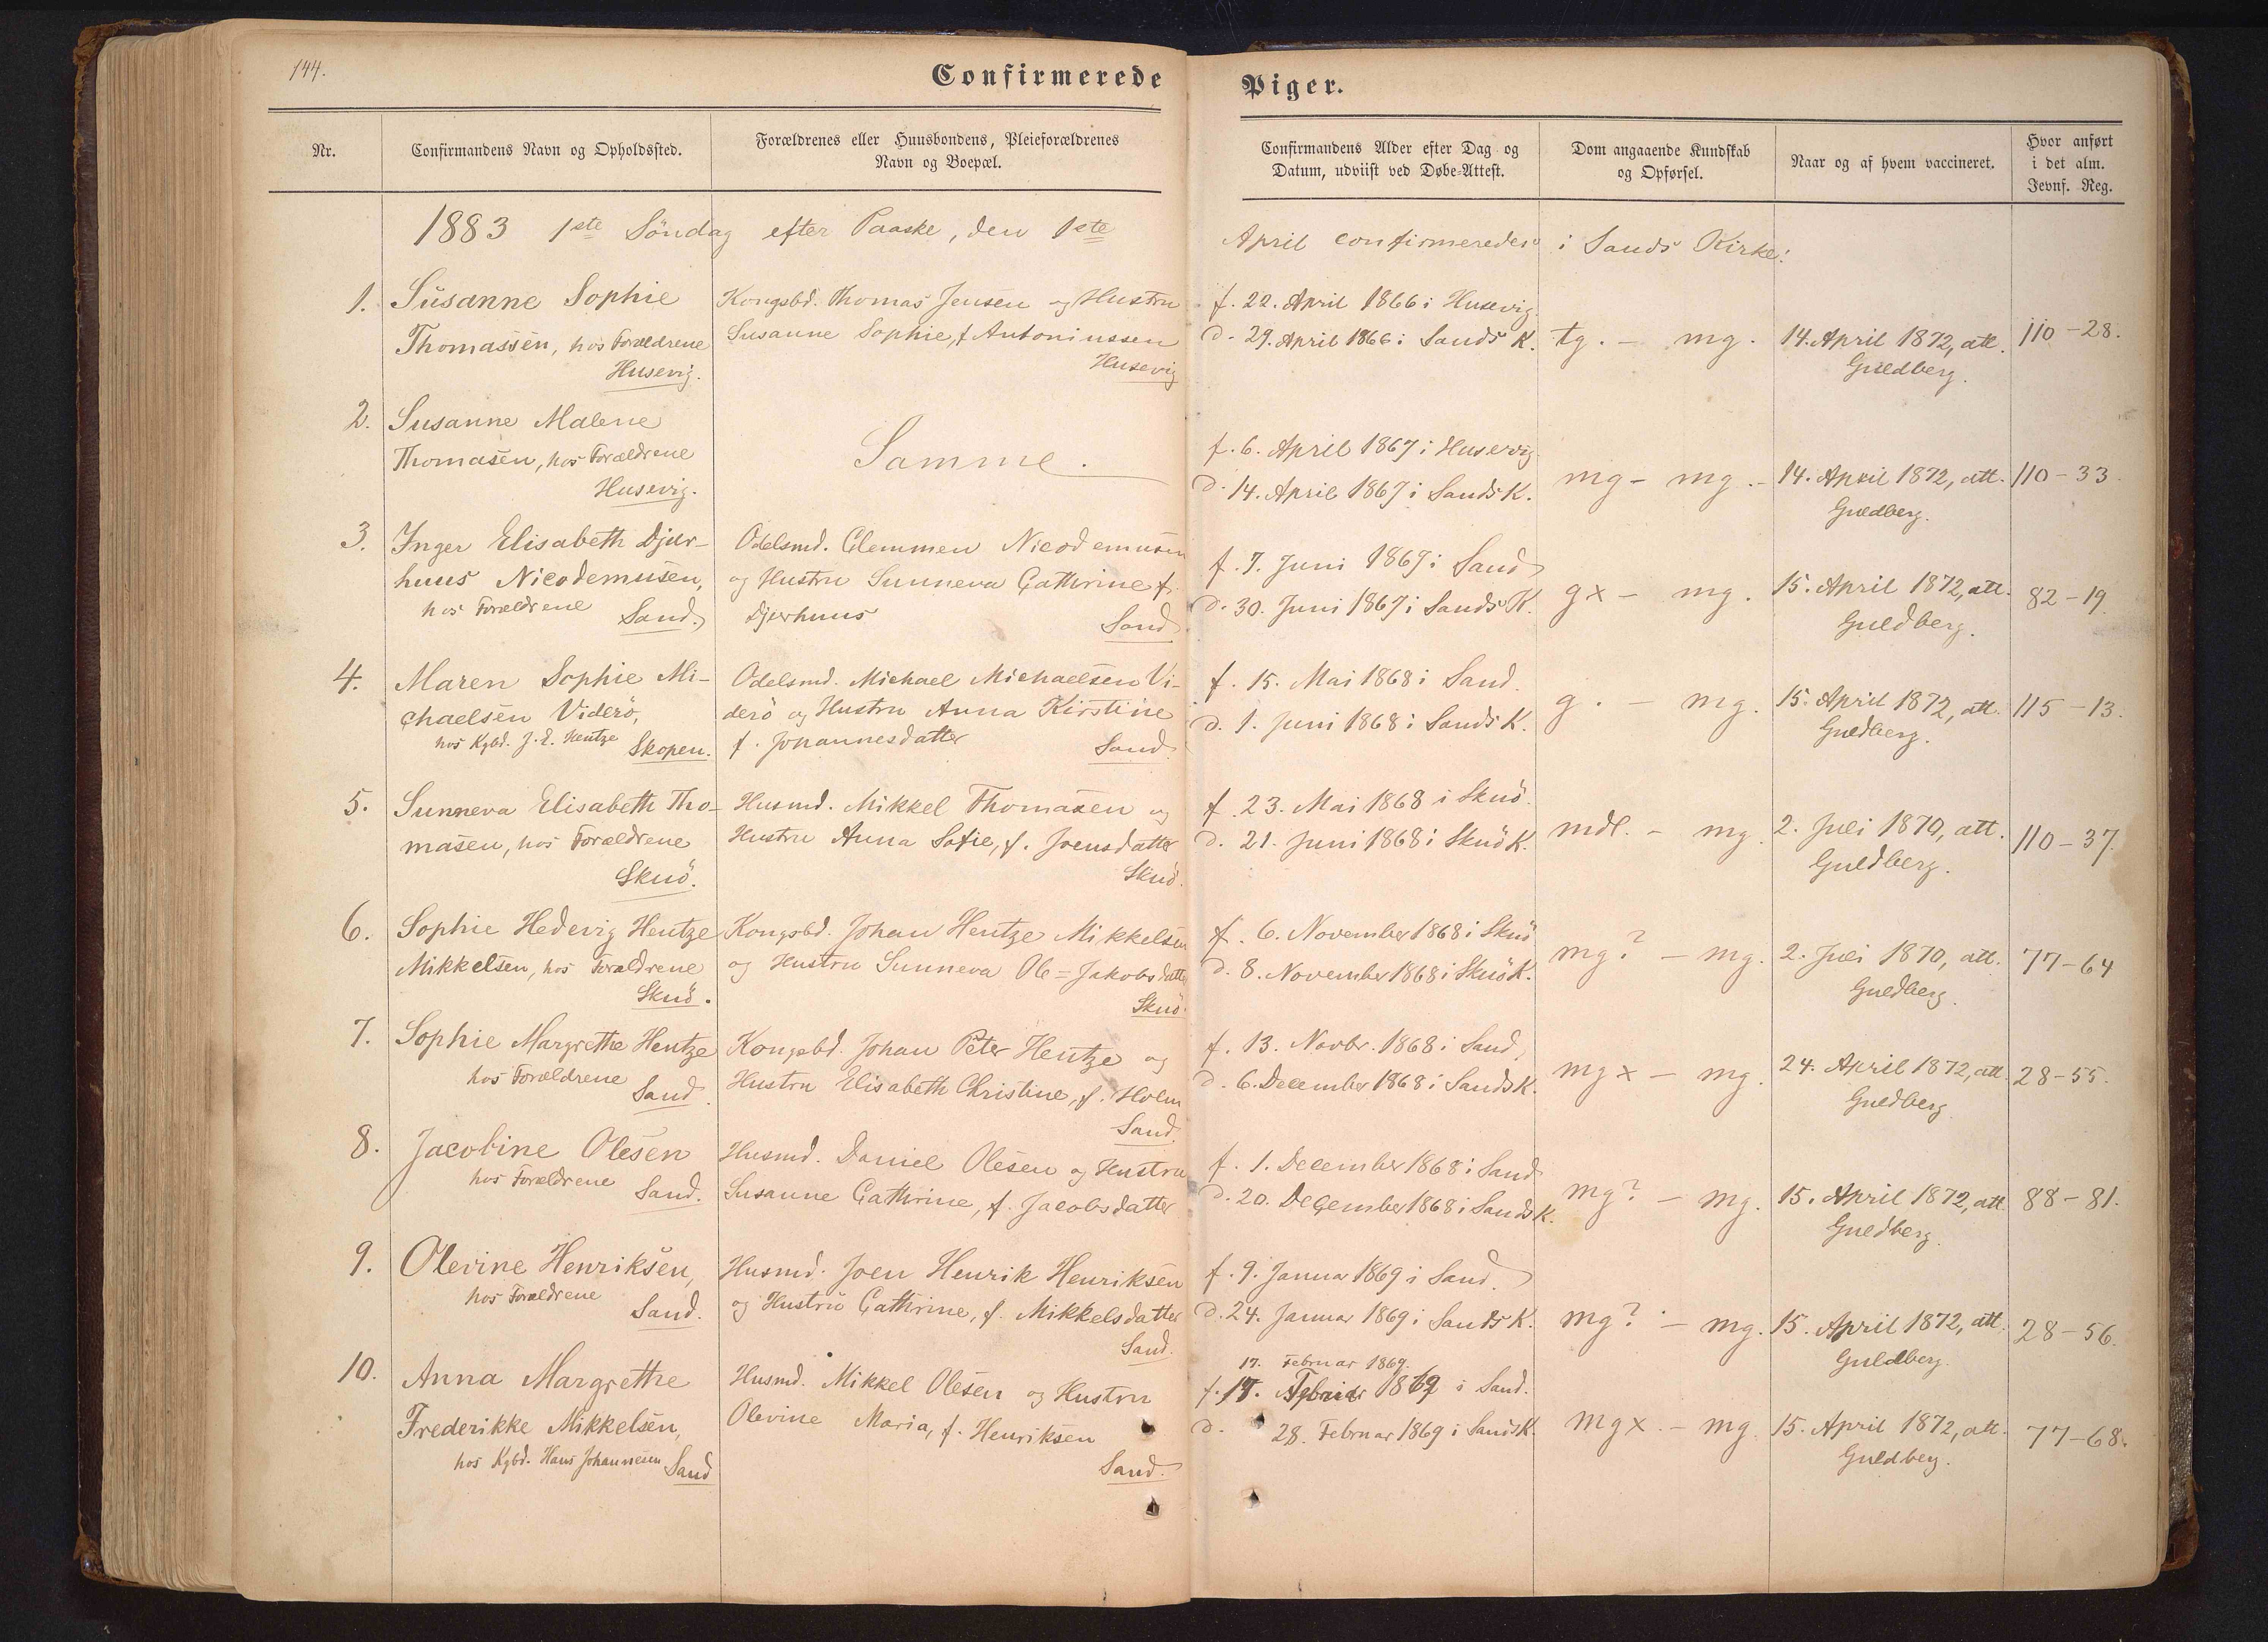 144.
Confirmerede Piger.
Nr.
Confirmandens Navn og Opholdssted.
Forældrenes eller Huusbondens, Pleieforældrenes
Navn og Boepæl.
Confirmandens Alder efter Dag og
Datum, udviist ved Døbe-Attest.
Dom angaaende Kundskab
og Opførsel.
Naar og af hvem vaccineret.
Hvor anført
i det alm.
Jevnf. Reg.
1883 1ste Söndag efter Paaske, den 1ste April confirmeredes i Sands Kirke:
1.
Susanne Sophie
Thomassen, hos Forældrene
Husevig.
Kongsbd. Thomas Jensen og Hustru
Susanne Sophie, f. Antoniussen
Husevig
f. 22. April 1866 i Husevig.
d. 29. April 1866 i Sands K.
tg. – mg.
14. April 1872, att.
Guldberg.
110 – 28.
2.
Susanne Malene
Thomasen, hos Forældrene
Husevig.
Samme.
f. 6. April 1867 i Husevig
d. 14. April 1867 i Sands K.
mg – mg. –
14. April 1872, att.
Guldberg.
110 – 33.
3.
Inger Elisabeth Djur-
huus Nicodemusen,
hos Forældrene
Sand.
Odelsmd. Clemmen Nicodemusen
og Hustru Sunneva Cathrine f.
Djurhuus
Sand
f. 7. Juni 1867 i Sand
d. 30. Juni 1867 i Sands K.
gx – mg.
15. April 1872, att.
Guldberg.
82 – 19.
4.
Maren Sophie Mi-
chaelsen Viderö,
hos Kgbd. J. E. Hentze
Skopen.
Odelsmd. Michael Michaelsen Vi-
derö og Hustru Anna Kirstine
f. Johannesdatter
Sand
f. 15. Mai 1868 i Sand.
d. 1. Juni 1868 i Sands K.
g. – mg.
15. April 1872, att.
Guldberg.
115 – 13.
5.
Sunneva Elisabeth Tho-
masen, hos Forældrene
Skuö.
Husmd. Mikkel Thomasen og
Hustru Anna Sofie, f. Joensdatter
Skuö.
f. 23. Mai 1868 i Skuö.
d. 21. Juni 1868 i Skuö K.
mdl. – mg.
2. Juli 1870, att.
Guldberg.
110 – 37.
6.
Sophie Hedevig Hentze
Mikkelsen, hos Forældrene
Skuö.
Kongsbd. Johan Hentze Mikkelsen
og Hustru Sunneva Ole=Jakobsdatter
Skuö.
f. 6. November 1868 i Skuö
d. 8. November 1868 i Skuö K.
mg? – mg.
2. Juli 1870, att.
Guldberg.
77 – 64
7.
Sophie Margrethe Hentze
hos Forældrene
Sand.
Kongsbd. Johan Peter Hentze og
Hustru Elisabeth Christine, f. Holm
Sand.
f. 13. Novbr. 1868 i Sand,
d. 6. December 1868 i Sands K.
mgx – mg.
24. April 1872, att.
Guldberg
28 – 55.
8.
Jacobine Olesen
hos Forældrene
Sand.
Husmd. Daniel Olesen og Hustru
Susanne Cathrine, f. Jacobsdatter
f. 1. December 1868 i Sand
d. 20. December 1868 i Sands K.
mg? – mg.
15. April 1872, att.
Guldberg.
88 – 81.
9.
Olevine Henriksen,
hos Forældrene
Sand.
Husmd. Joen Henrik Henriksen
og Hustru Cathrine, f. Mikkelsdatter
Sand.
f. 9. Januar 1869 i Sand.
d. 24. Januar 1869 i Sands K.
mg? – mg.
15. April 1872, att.
Guldberg.
28 – 56.
10.
Anna Margrethe
Frederikke Mikkelsen,
hos Kgbd. Hans Johannesen
Sand
Husmd. Mikkel Olesen og Hustru
Olevine Maria, f. Henriksen
Sand.
17. Februar 1869.
f. 17. Februar 1869 i Sand.
d. 28. Februar 1869 i Sands K.
mgx. – mg.
15. April 1872, att.
Guldberg.
77 – 68.